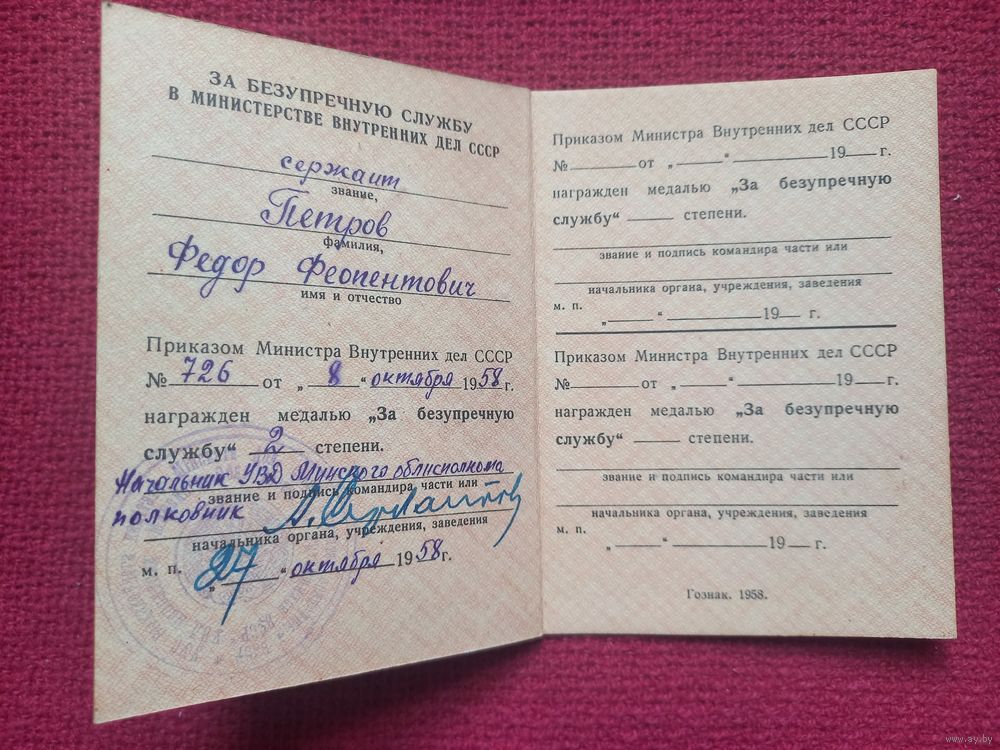 ЗА БЕЗУПРЕЧНУЮ СЛУЖБУ
В МИНИСТЕРСТВЕ ВНУТРЕННИХ ДЕЛ СССР
сержант
звание,
Петров
фамилия,
Федор Феопентович
имя и отчество
Приказом Министра Внутренних дел СССР
№ 726 от „ 8 “ октября 1958 г.
награжден медалью „За безупречную
службу“ 2 степени.
Начальник УВД Минского облисполкома
звание и подпись командира части или
полковник
начальника органа, учреждения, заведения
м. п. „ 27 “ октября 1958 г.
Приказом Министра Внутренних дел СССР
№ от „ “ 19 г.
награжден медалью „За безупречную
службу“ степени.
звание и подпись командира части или
начальника органа, учреждения, заведения
м. п.
„ “ 19 г.
Приказом Министра Внутренних дел СССР
№ от „ “ 19 г.
награжден медалью „За безупречную
службу“ степени.
звание и подпись командира части или
начальника органа, учреждения, заведения
м. п.
„ “ 19 г.
Гознак. 1958.
www.ay.by